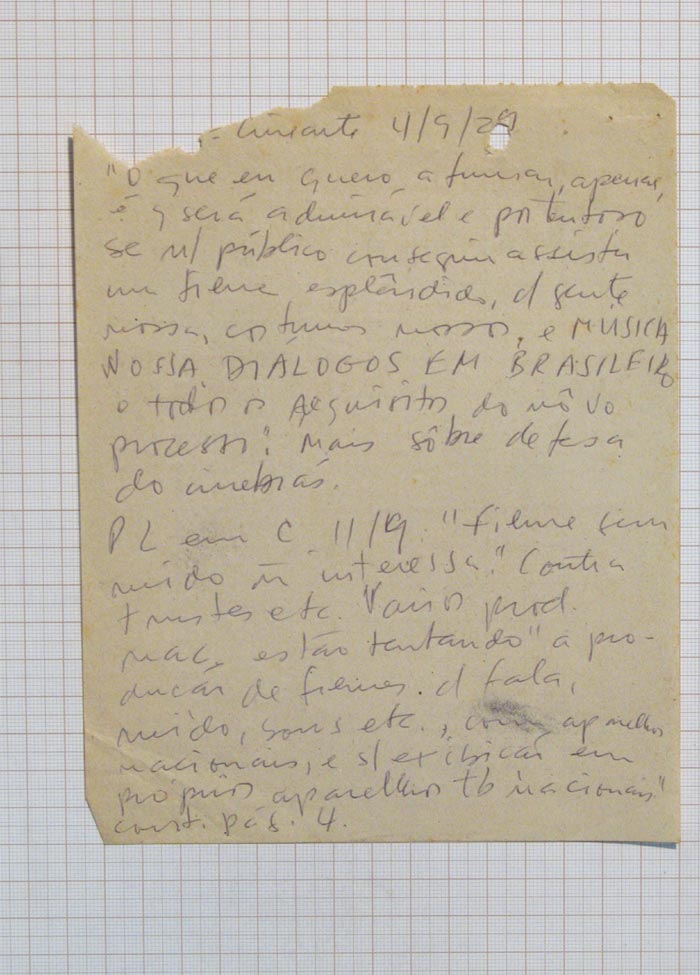 - Cinearte 4/9/29
"O que eu quero afirmar, apenas,
é q será admirável e portentoso
se n/ público conseguir assistir
um filme esplêndido, d gente
nossa, costumes nossos, e MÚSICA
NOSSA DIÁLOGOS EM BRASILEIRO
e todos os requisitos do nôvo
processo". Mais sôbre defesa
do cinebrás.
PL em C 11/9. "filme sem
ruído ñ interessa". Contra
trustes etc. "Vários prod.
nac. estão tentando" a pro-
dução de filmes. d fala,
ruído, sons etc., com aparelhos
nacionais, e s/ exibição em
próprios aparelhos tb nacionais"
cont. pág. 4.